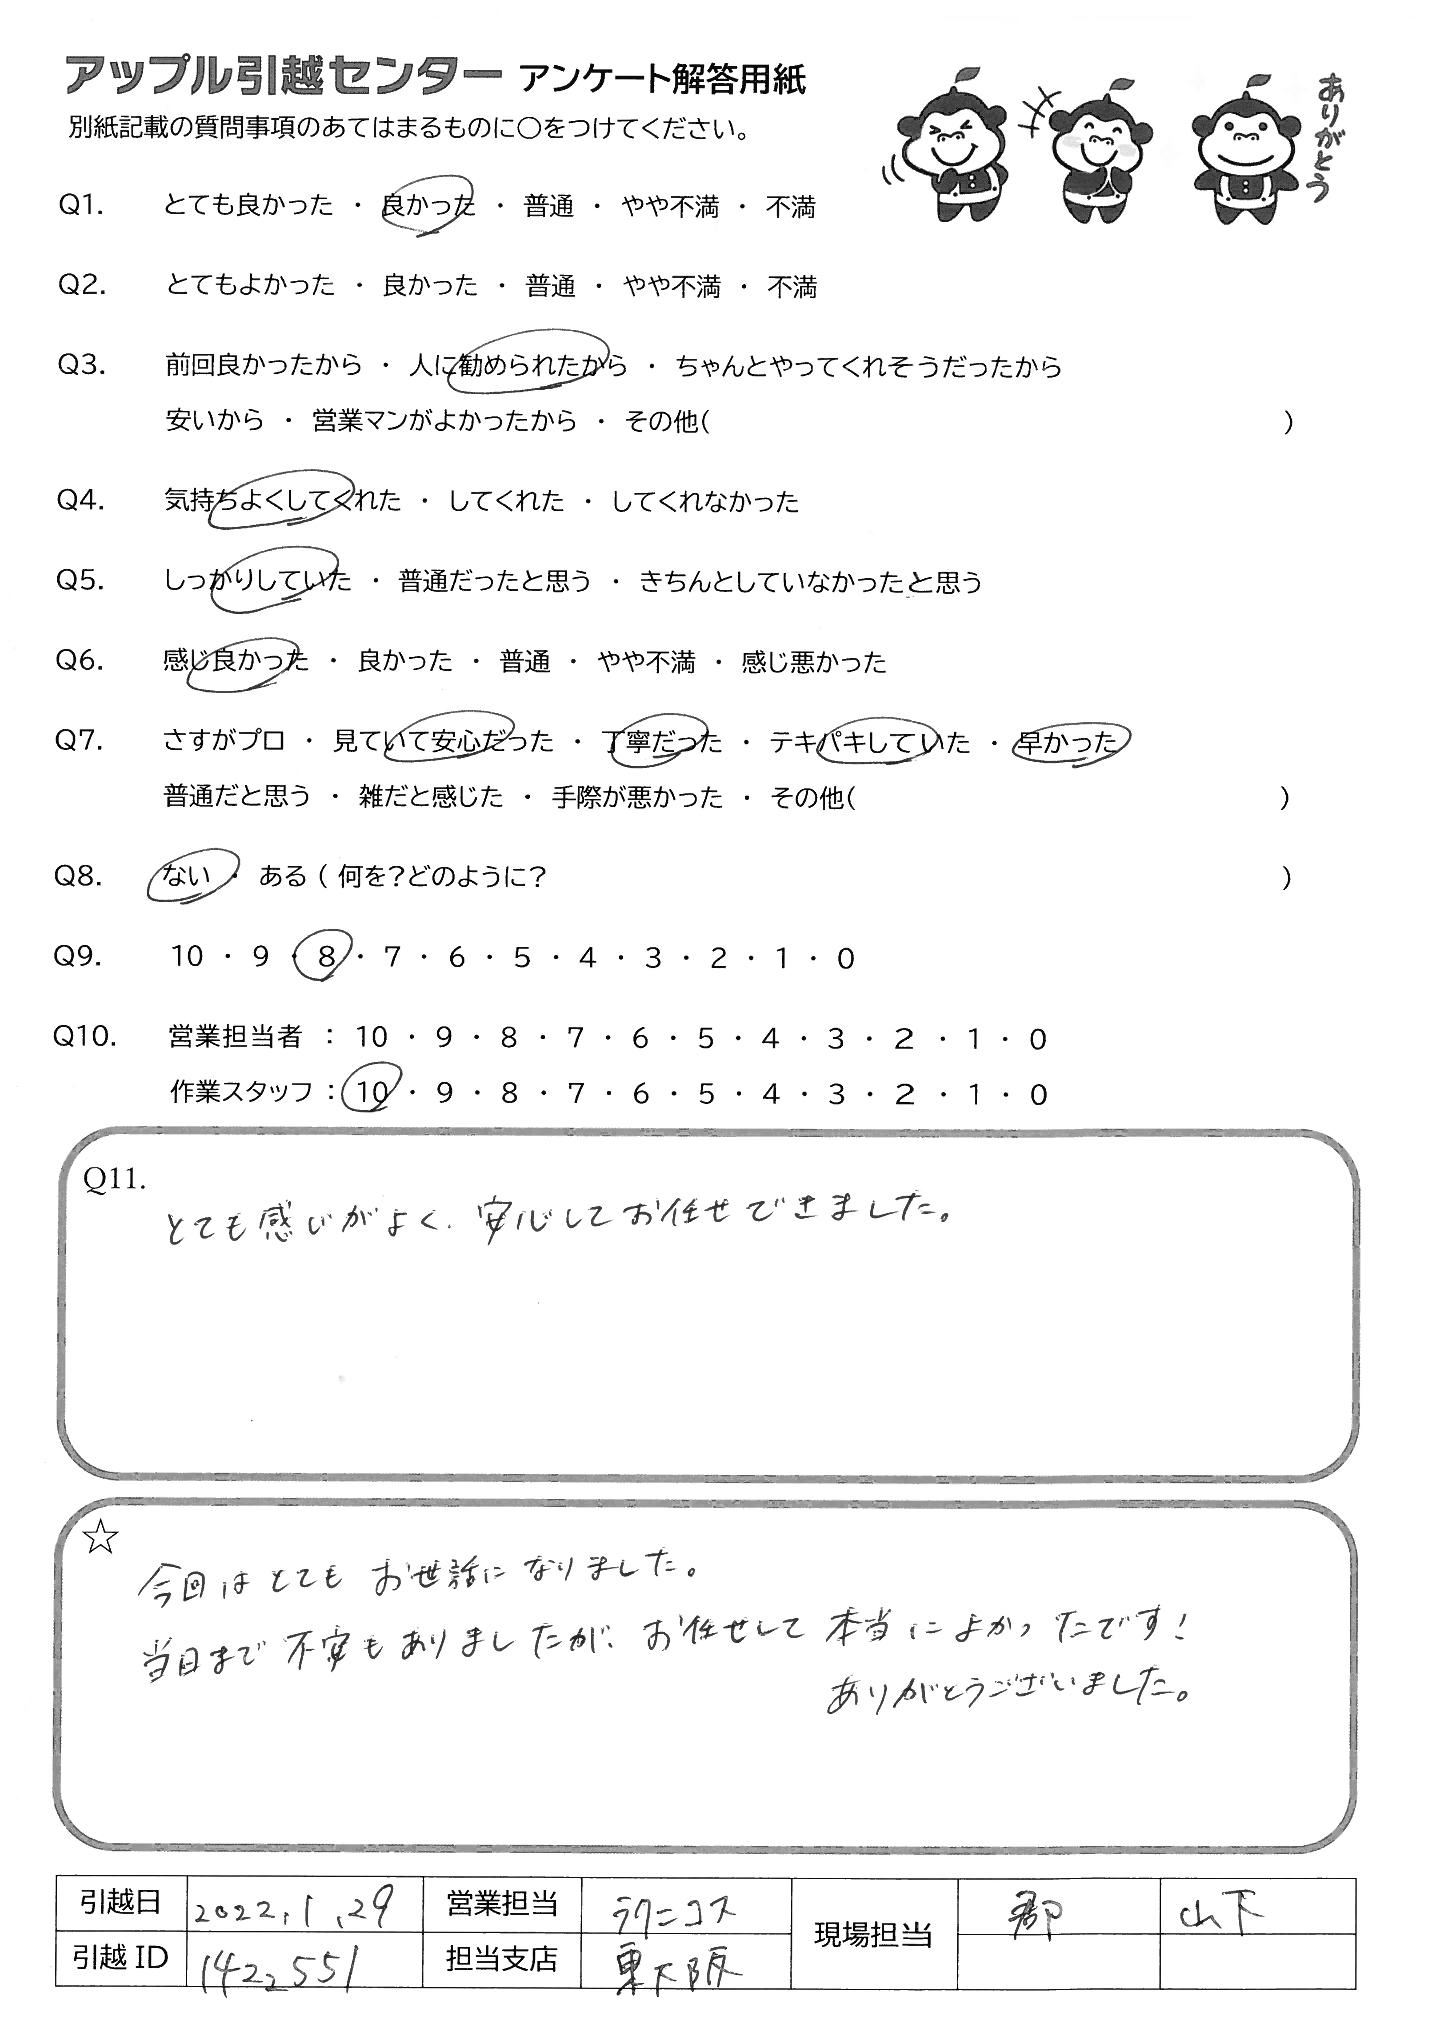 アップル引越センター アンケート解答用紙
別紙記載の質問事項のあてはまるものに〇をつけてください。
ありがとう
Q1. とても良かった ・ 良かった ・ 普通 ・ やや不満 ・ 不満
Q2. とてもよかった ・ 良かった ・ 普通 ・ やや不満 ・ 不満
Q3. 前回良かったから ・ 人に勧められたから ・ ちゃんとやってくれそうだったから
安いから ・ 営業マンがよかったから ・ その他( )
Q4. 気持ちよくしてくれた ・ してくれた ・ してくれなかった
Q5. しっかりしていた ・ 普通だったと思う ・ きちんとしていなかったと思う
Q6. 感じ良かった ・ 良かった ・ 普通 ・ やや不満 ・ 感じ悪かった
Q7. さすがプロ ・ 見ていて安心だった ・ 丁寧だった ・ テキパキしていた ・ 早かった
普通だと思う ・ 雑だと感じた ・ 手際が悪かった ・ その他( )
Q8. ない ・ ある ( 何を?どのように? )
Q9. 10 ・ 9 ・ 8 ・ 7 ・ 6 ・ 5 ・ 4 ・ 3 ・ 2 ・ 1 ・ 0
Q10. 営業担当者 : 10 ・ 9 ・ 8 ・ 7 ・ 6 ・ 5 ・ 4 ・ 3 ・ 2 ・ 1 ・ 0
作業スタッフ : 10 ・ 9 ・ 8 ・ 7 ・ 6 ・ 5 ・ 4 ・ 3 ・ 2 ・ 1 ・ 0
Q11.
とても感じがよく、安心してお任せできました。
☆
今回はとてもお世話になりました。
当日まで不安もありましたが、お任せして本当によかったです!
ありがとうございました。
引越日 2022.1.29 営業担当 ラクニコス 現場担当 郡 山下
引越ID 142551 担当支店 東大阪